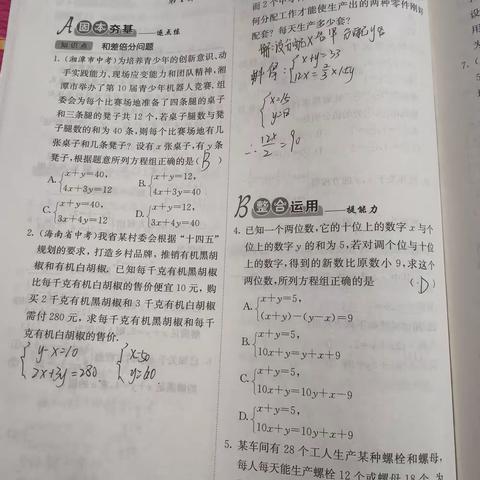 A 固本夯基 ——逐点练
知识点 和差倍分问题
1. (湘潭市中考)为培养青少年的创新意识、动
手实践能力、现场应变能力和团队精神,湘
潭市举办了第 10 届青少年机器人竞赛. 组
委会为每个比赛场地准备了四条腿的桌子
和三条腿的凳子共 12 个,若桌子腿数与凳
子腿数的和为 40 条,则每个比赛场地有几
张桌子和几条凳子? 设有 x 张桌子,有 y 条
凳子,根据题意所列方程组正确的是( B )
A. {x+y=40, 4x+3y=12 B. {x+y=12, 4x+3y=40
C. {x+y=40, 3x+4y=12 D. {x+y=12, 3x+4y=40
2. (海南省中考)我省某村委会根据“十四五”
规划的要求,打造乡村品牌,推销有机黑胡
椒和有机白胡椒. 已知每千克有机黑胡椒
比每千克有机白胡椒的售价便宜 10 元,购
买 2 千克有机黑胡椒和 3 千克有机白胡椒
需付 280 元,求每千克有机黑胡椒和每千
克有机白胡椒的售价.
{y-x=10 {x=50
2x+3y=280 y=60
何分配工作才能使生产出的两种零件刚好
配套? 每天生产多少套?
{x+y=33
{x=15
∴ 12x/2 = 90
B 整合运用 ——提能力
4. 已知一个两位数,它的十位上的数字 x 与个
位上的数字 y 的和为 5,若对调个位与十位
上的数字,得到的新数比原数小 9,求这个
两位数,所列方程组正确的是 ( D )
A. {x+y=5, (x+y)-(y-x)=9
B. {x+y=5, 10x+y=y+x+9
C. {x+y=5, 10x+y=10y+x-9
D. {x+y=5, 10x+y=10y+x+9
5. 某车间有 28 个工人生产某种螺栓和螺母,
每人每天能生产螺栓 12 个或螺母 18 个,为
7. (